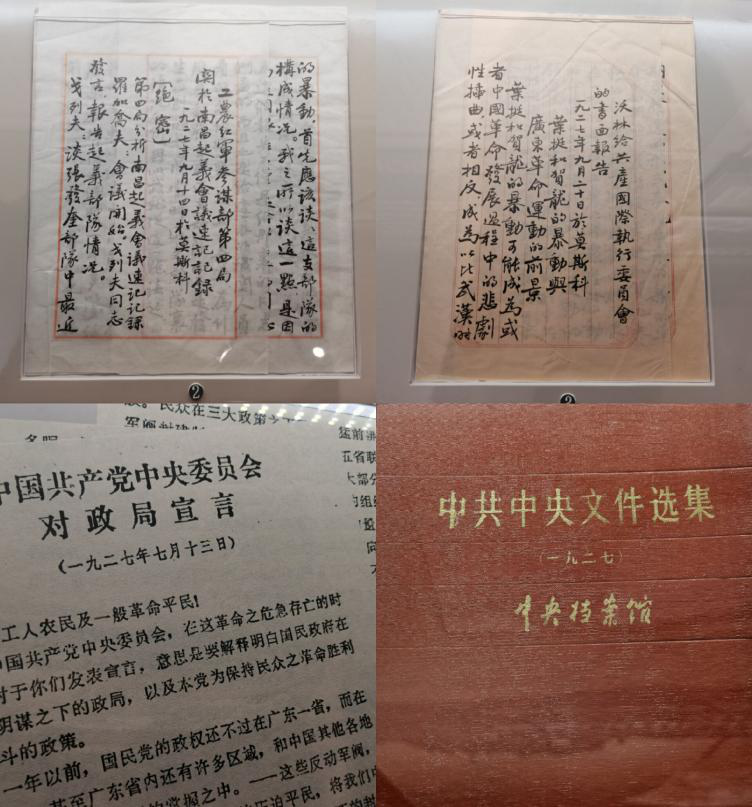 的暴動，首先應該談這支部隊的
構成情况。我之所以談這一點是因
工農紅軍参謀部第四局
關於南昌起義會議速記記録
一九二七年九月十四日於莫斯科
[絶密]
第四局分析南昌起義會議速記記録
羅加喬夫：會議開始，戈列夫同志
發言，報告起義部隊情况。
戈列夫：談張發奎部隊中最近
2
沃林給共產國際執行委員會
的書面報告
一九二七年九月二十日於莫斯科
葉挺和賀龍的暴動與
廣東革命運動的前景
葉挺和賀龍的暴動可能成為或
者中國革命發展過程中的悲劇
性插曲，或者相反，成為以比武漢時
2
民众在三大政策
中国共产党中央委员会
对政局宣言
（一九二七年七月十三日）
工人农民及一般革命平民！
中国共产党中央委员会，在这革命之危急存亡的时
对于你们发表宣言，意思是要解释明白国民政府在
阴谋之下的政局，以及本党为保持民众之革命胜利
斗的政策。
一年以前，国民党的政权还不过在广东一省，而在
甚至广东省内还有许多区域，和中国其他各地
的掌握之中。——这些反动军阀，
压迫平民，将我们中
猛前
五省联
大部分
的组
向
中共中央文件选集
（一九二七）
中央档案馆